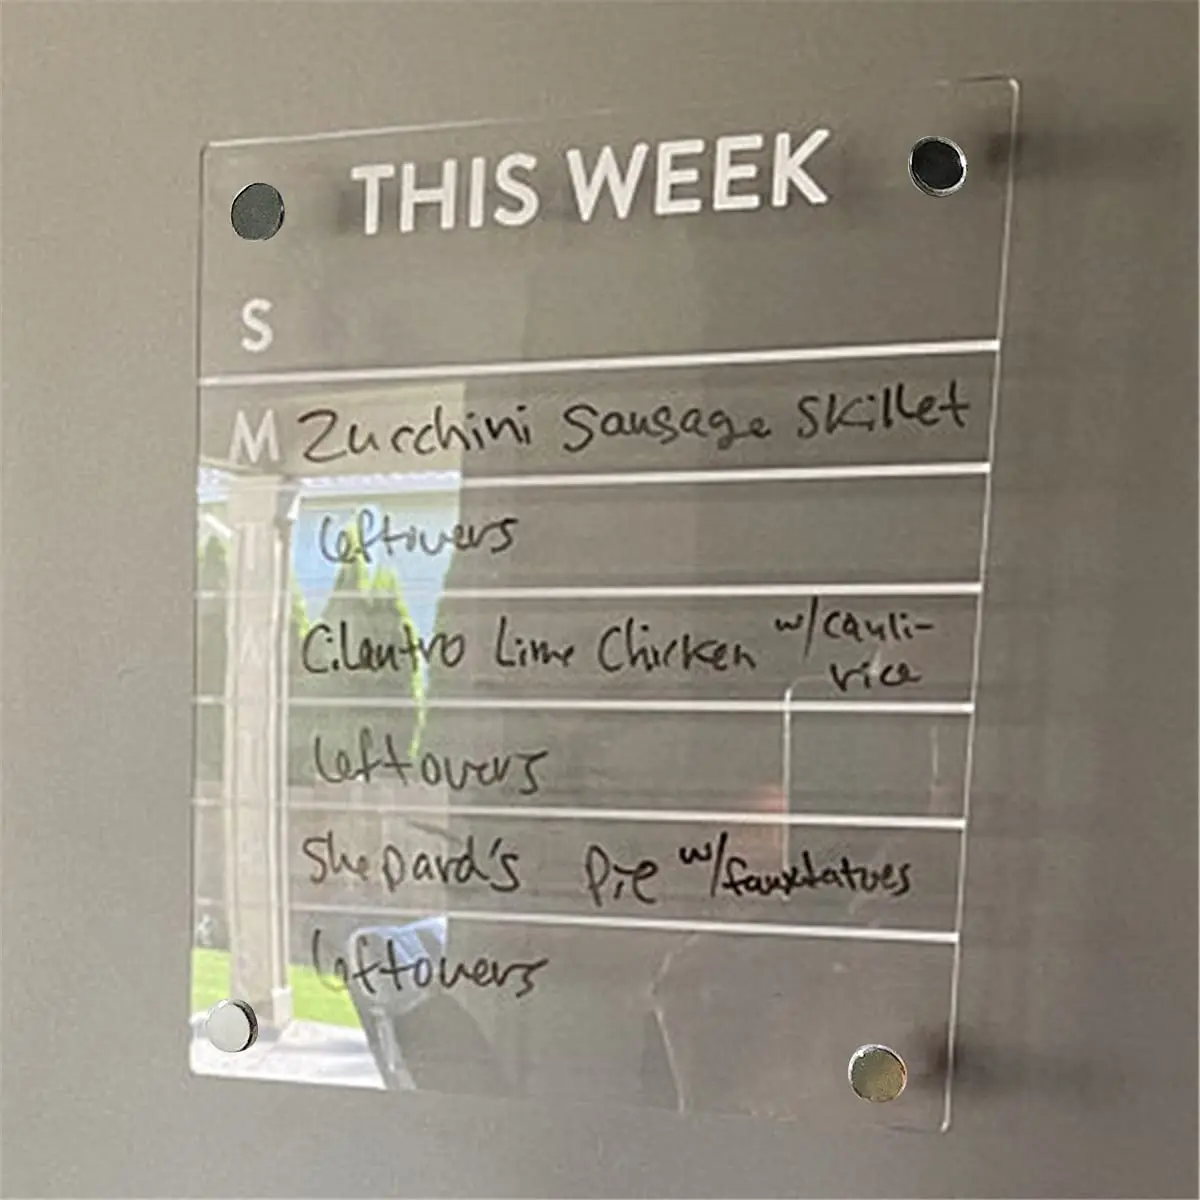 THIS WEEK
S
M Zucchini Sausage Skillet
leftovers
Cilantro Lime Chicken w/cauli-
rice
leftovers
Shepard's Pie w/fauxtatoes
leftovers